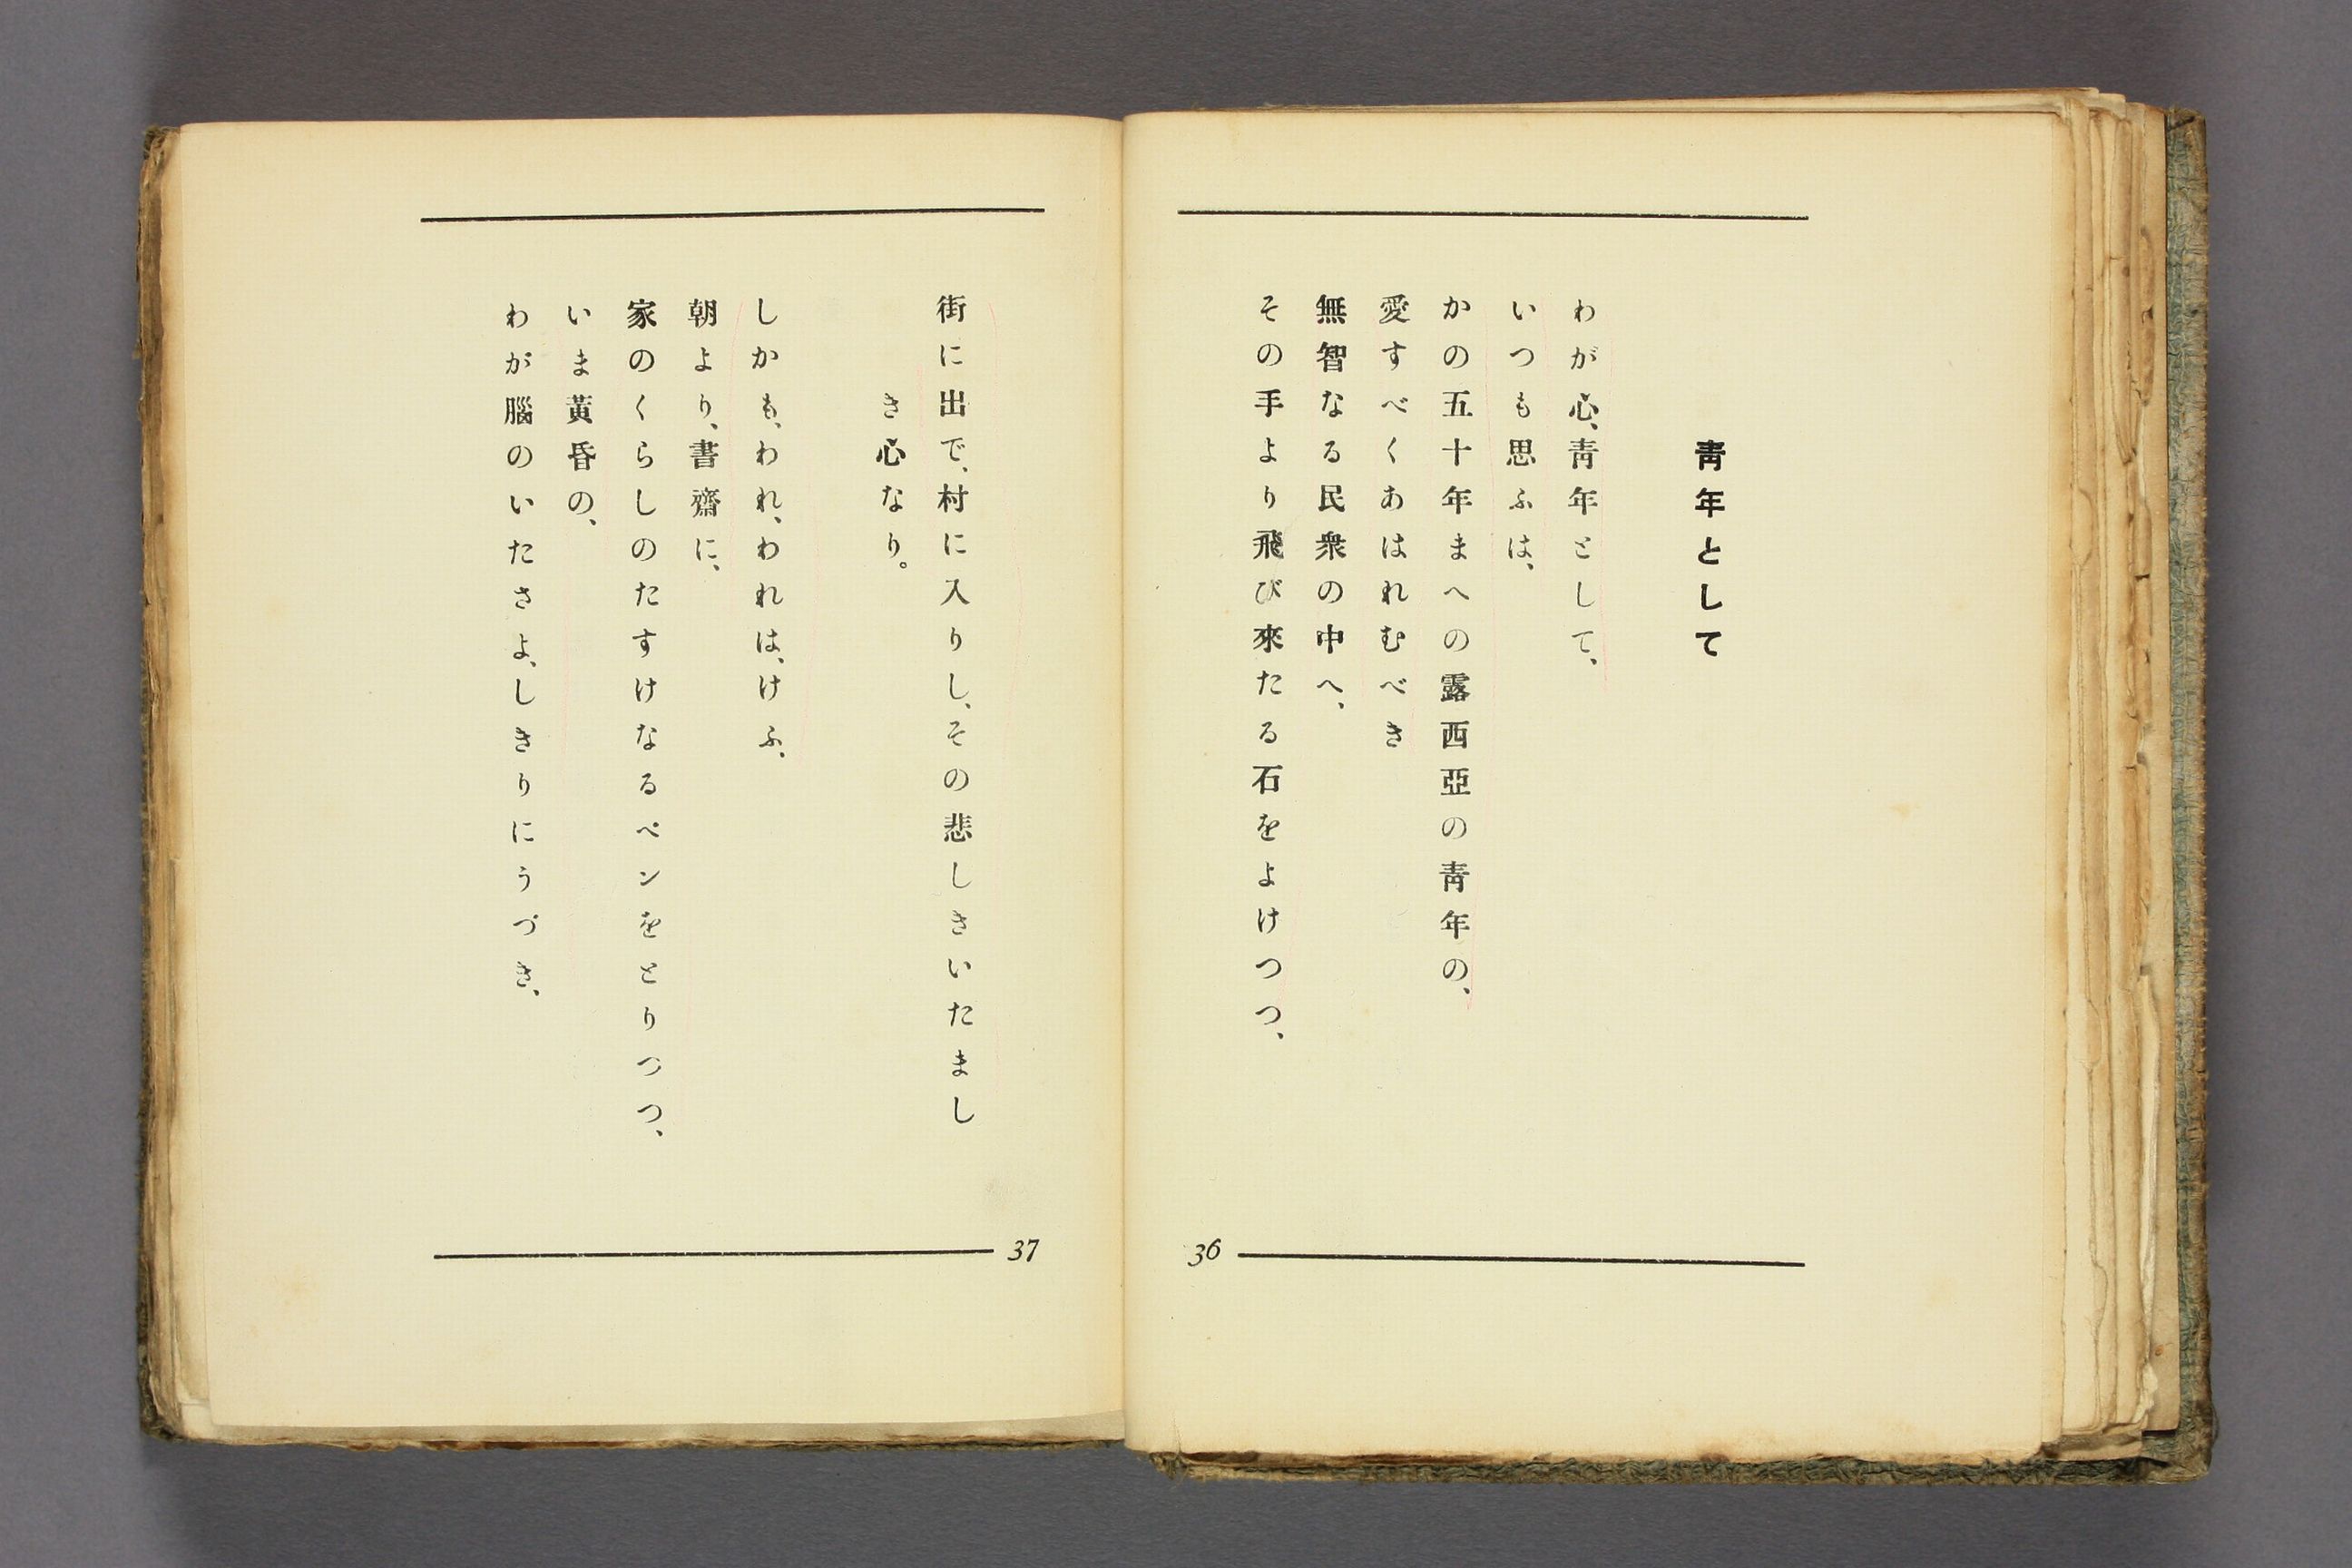 青年として
わが心、青年として、
いつも思ふは、
かの五十年まへの露西亞の青年の、
愛すべくあはれむべき
無智なる民衆の中へ、
その手より飛び來たる石をよけつつ、
36
街に出で、村に入りし、その悲しきいたまし
き心なり。
しかも、われ、われは、けふ、
朝より、書齋に、
家のくらしのたすけなるペンをとりつつ、
いま黄昏の、
わが腦のいたさよ、しきりにうづき、
37